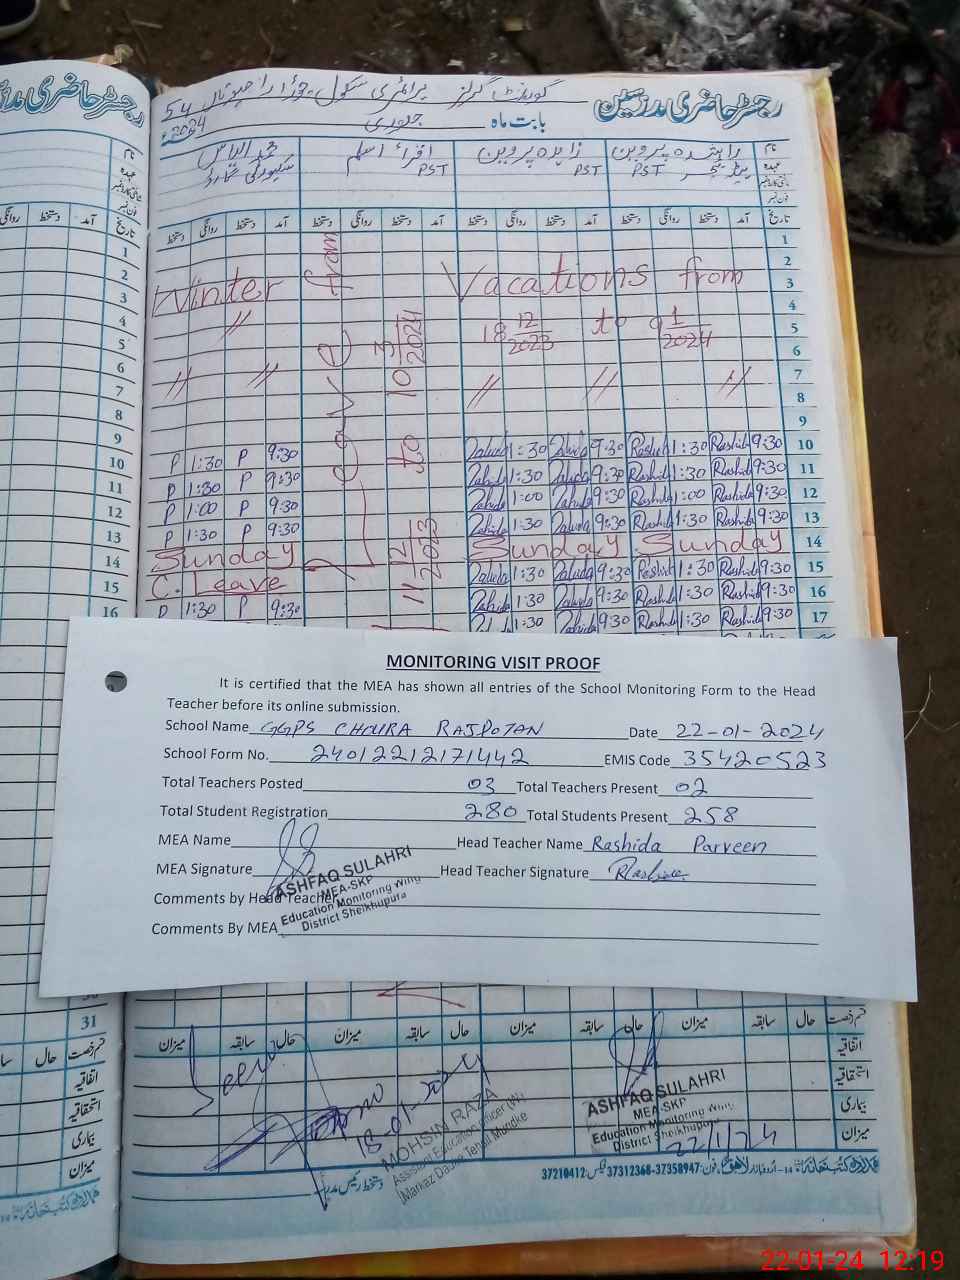 رجسٹر حاضری مدرسین
گورنمنٹ گرلز پرائمری سکول چوڑا راجپوتاں 54
بابت ماہ جنوری 2024ء
نام
راشدہ پروین زاہدہ پروین اقراء اسلم محمد الیاس
عہدہ
ہیڈ ٹیچر PST PST PST سکیورٹی گارڈ
تاریخ آمد دستخط روانگی دستخط آمد دستخط روانگی دستخط آمد دستخط روانگی دستخط آمد دستخط روانگی دستخط
1
2
3
4
5
6
7
8
9
Winter Vacations from
18 12/2023 to 9 1/2024
Leave from
11 12/2023 to 10 3/2024
P 1:30 P 9:30 Zahida 1:30 Zahida 9:30 Rashida 1:30 Rashida 9:30 10
P 1:30 P 9:30 Zahida 1:30 Zahida 9:30 Rashida 1:30 Rashida 9:30 11
P 1:00 P 9:30 Zahida 1:00 Zahida 9:30 Rashida 1:00 Rashida 9:30 12
P 1:30 P 9:30 Zahida 1:30 Zahida 9:30 Rashida 1:30 Rashida 9:30 13
Sunday Sunday Sunday 14
C. Leave Zahida 1:30 Zahida 9:30 Rashida 1:30 Rashida 9:30 15
P 1:30 P 9:30 Zahida 1:30 Zahida 9:30 Rashida 1:30 Rashida 9:30 16
1:30 Zahida 9:30 Rashida 1:30 Rashida 9:30 17
MONITORING VISIT PROOF
It is certified that the MEA has shown all entries of the School Monitoring Form to the Head
Teacher before its online submission.
School Name GGPS CHOURA RAJPOTAN Date 22-01-2024
School Form No. 24012212171442 EMIS Code 35420523
Total Teachers Posted 03 Total Teachers Present 02
Total Student Registration 280 Total Students Present 258
MEA Name Head Teacher Name Rashida Parveen
MEA Signature Head Teacher Signature Rashida
Comments by Head Teacher
Comments By MEA
ASHFAQ SULAHRI
MEA-SKP
Education Monitoring Wing
District Sheikhupura
31
قسم رخصت حال سابقہ میزان حال سابقہ میزان حال سابقہ میزان حال سابقہ میزان
اتفاقیہ
استحقاقیہ
بیماری
میزان
Seen
18-01-2024
MOHSIN RAZA
Assistant Education Officer (W)
Markaz Tehsil Muridke
ASHFAQ SULAHRI
MEA-SKP
Education Monitoring Wing
District Sheikhupura
22/1/24
دستخط رئیس مدرسہ
ہمالہ کتب خانہ 14-اردو بازار لاہور فون: 37358947-37312368 فیکس: 37210412
22-01-24 12:19